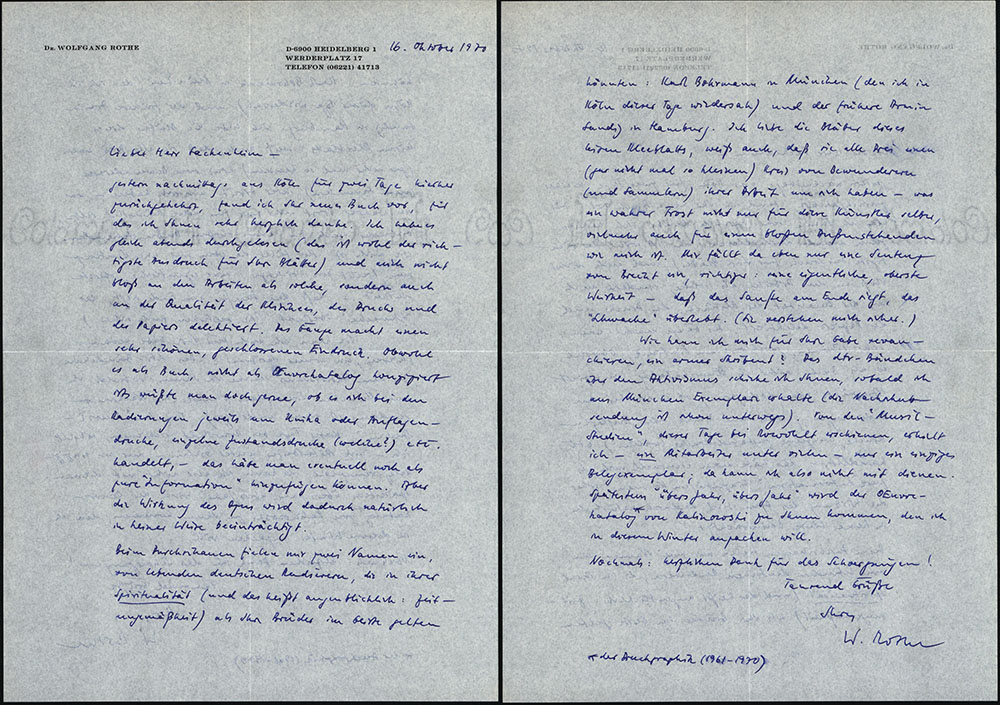 Dr. WOLFGANG ROTHE
D-6900 HEIDELBERG 1
WERDERPLATZ 17
TELEFON (06221) 41713
16. Oktober 1970
Lieber Herr Fachenheim –
gestern nachmittags aus Köln für zwei Tage hierher
zurückgekehrt, fand ich Ihr neues Buch vor, für
das ich Ihnen sehr herzlich danke. Ich habe es
gleich abends durchgelesen (das ist wohl der rich-
tigste Ausdruck für Ihre Blätter) und mich nicht
bloß an den Arbeiten als solche, sondern auch
an der Qualität der Klischees, des Drucks und
des Papiers delektiert. Das Ganze macht einen
sehr schönen, geschlossenen Eindruck. Obwohl
es als Buch, nicht als Œuvrekatalog konzipiert
ist, wüßte man doch gerne, ob es sich bei den
Radierungen jeweils um Unika oder Auflagen-
drucke, einzelne Zustandsdrucke (welche?) etc.
handelt, – das hätte man eventuell noch als
pure "Information" hinzufügen können. Aber
die Wirkung des Opus wird dadurch natürlich
in keiner Weise beeinträchtigt.
Beim Anschauen fielen mir zwei Namen ein,
von lebenden deutschen Radierern, die in ihrer
Spiritualität (und das heißt augenblicklich: Zeit-
ungemäßheit) als Ihre Brüder im Geiste gelten
könnten: Karl Bohrmann in München (den ich in
Köln dieser Tage wiedersah) und der frühere Armin
Sandig in Hamburg. Ich liebe die Blätter dieses
Kleeblatts, weiß auch, daß sie alle drei einen
(gar nicht mal so kleinen) Kreis von Bewunderern
(und Sammlern) ihrer Arbeit um sich haben – was
ein wahrer Trost nicht nur für diese Künstler selber,
vielmehr auch für einen bloßen Außenstehenden
wie mich ist. Mir fällt da eben nur eine Sentenz
von Brecht ein, richtiger: eine eigentliche, oberste
Wahrheit – daß das Sanfte am Ende siegt, das
"Schwache" überlebt. (Sie verstehen mich sicher.)
Wie kann ich mich für Ihre Gabe revan-
chieren, ein armer Skribent! Das dtv-Bändchen
über den Aktivismus schicke ich Ihnen, sobald ich
aus München Exemplare erhalte (die Nachschub-
sendung ist schon unterwegs), von den "Musil-
Studien", dieser Tage bei Rowohlt erschienen, erhält
ich – ein Mitarbeiter unter vielen – nur ein einziges
Belegexemplar; da kann ich also nicht mit dienen.
Spätestens "übers Jahr, übers Jahr" wird der Œuvre-
katalog* von Kalinowski zu Ihnen kommen, den ich
in diesem Winter anpacken will.
Nochmals: herzlichen Dank für das Schaugvnügen!
Tausend Grüße
Ihres
W. Rothe
* der Druckgraphik (1961–1970)